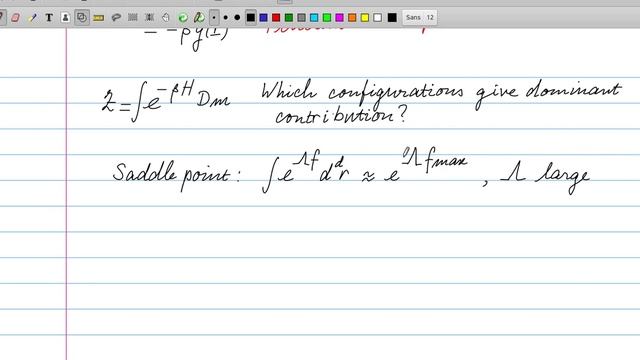 T
Sans 12
= -βg(I)
Z = ∫e^{-βH} Dm Which configurations give dominant
contribution?
Saddle point: ∫e^{Λf} d^d r ≈ e^{Λf_{max}}, Λ large